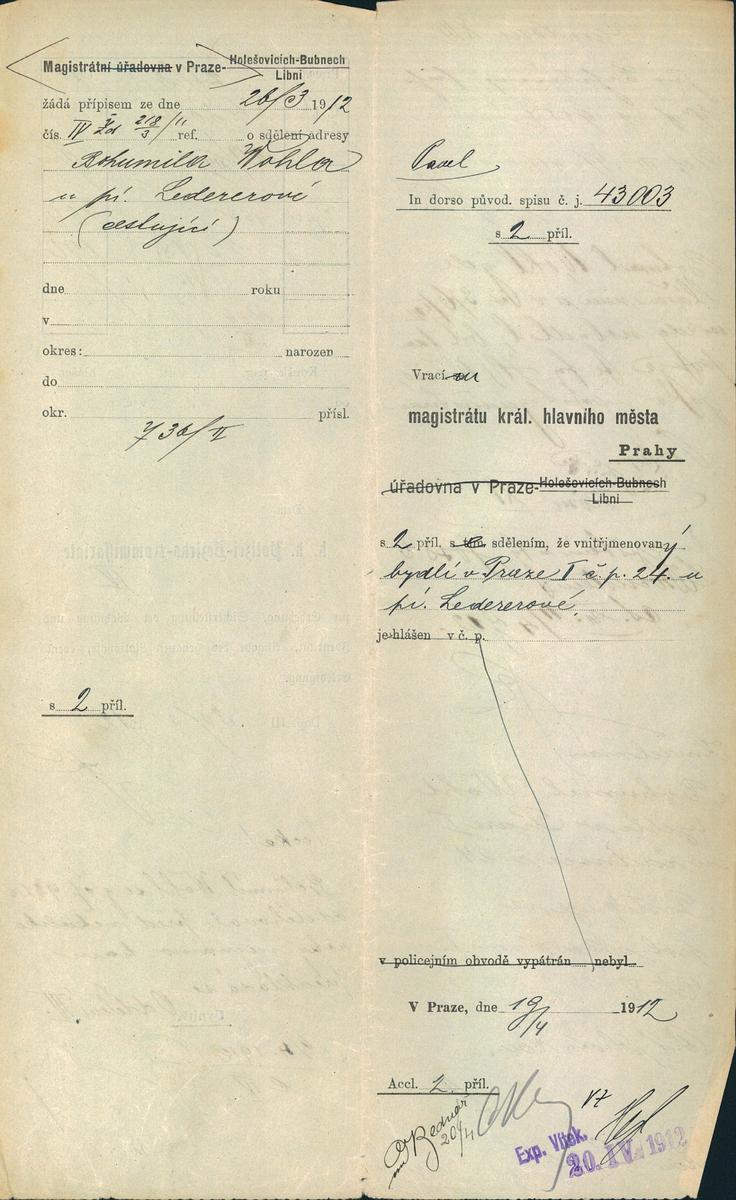 Magistrátní úřadovna v Praze-Holešovicích-Bubnech
Libni
žádá přípisem ze dne 26/3 1912
čís. IV 218/3/11 ref. o sdělení adresy
Bohumila Wohla
u pí. Ledererové
(cestující)
dne roku
v
okres: narozen
do
okr. přísl.
736/II
s 2 příl.
In dorso původ. spisu č. j. 43003
s 2 příl.
Vrací
magistrátu král. hlavního města
Prahy
úřadovna v Praze-Holešovicích-Bubnech
Libni
s 2 příl. s tím sdělením, že vnitřjmenovaný
bydlí v Praze I č. p. 24. u
pí. Ledererové.
je hlášen v č. p.
v policejním obvodě vypátrán nebyl.
V Praze, dne 19/4 1912
Accl. 2 příl.
Bednář
20/4
Exp. Vítek.
20. IV. 1912